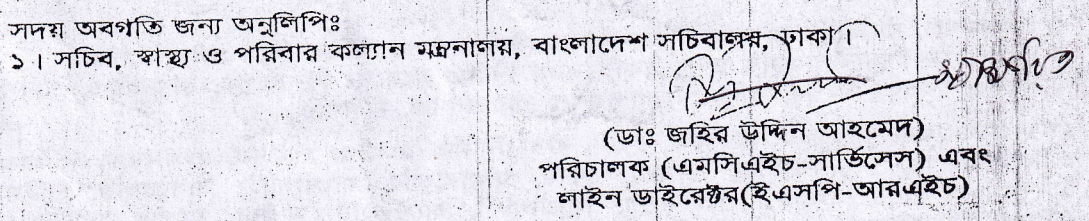 সদয় অবগতি জন্য অনুলিপিঃ
১। সচিব, স্বাস্থ্য ও পরিবার কল্যান মন্ত্রনালয়, বাংলাদেশ সচিবালয়, ঢাকা।
(ডাঃ জহির উদ্দিন আহমেদ)
পরিচালক (এমসিএইচ-সার্ভিসেস) এবং
লাইন ডাইরেক্টর(ইএসপি-আরএইচ)